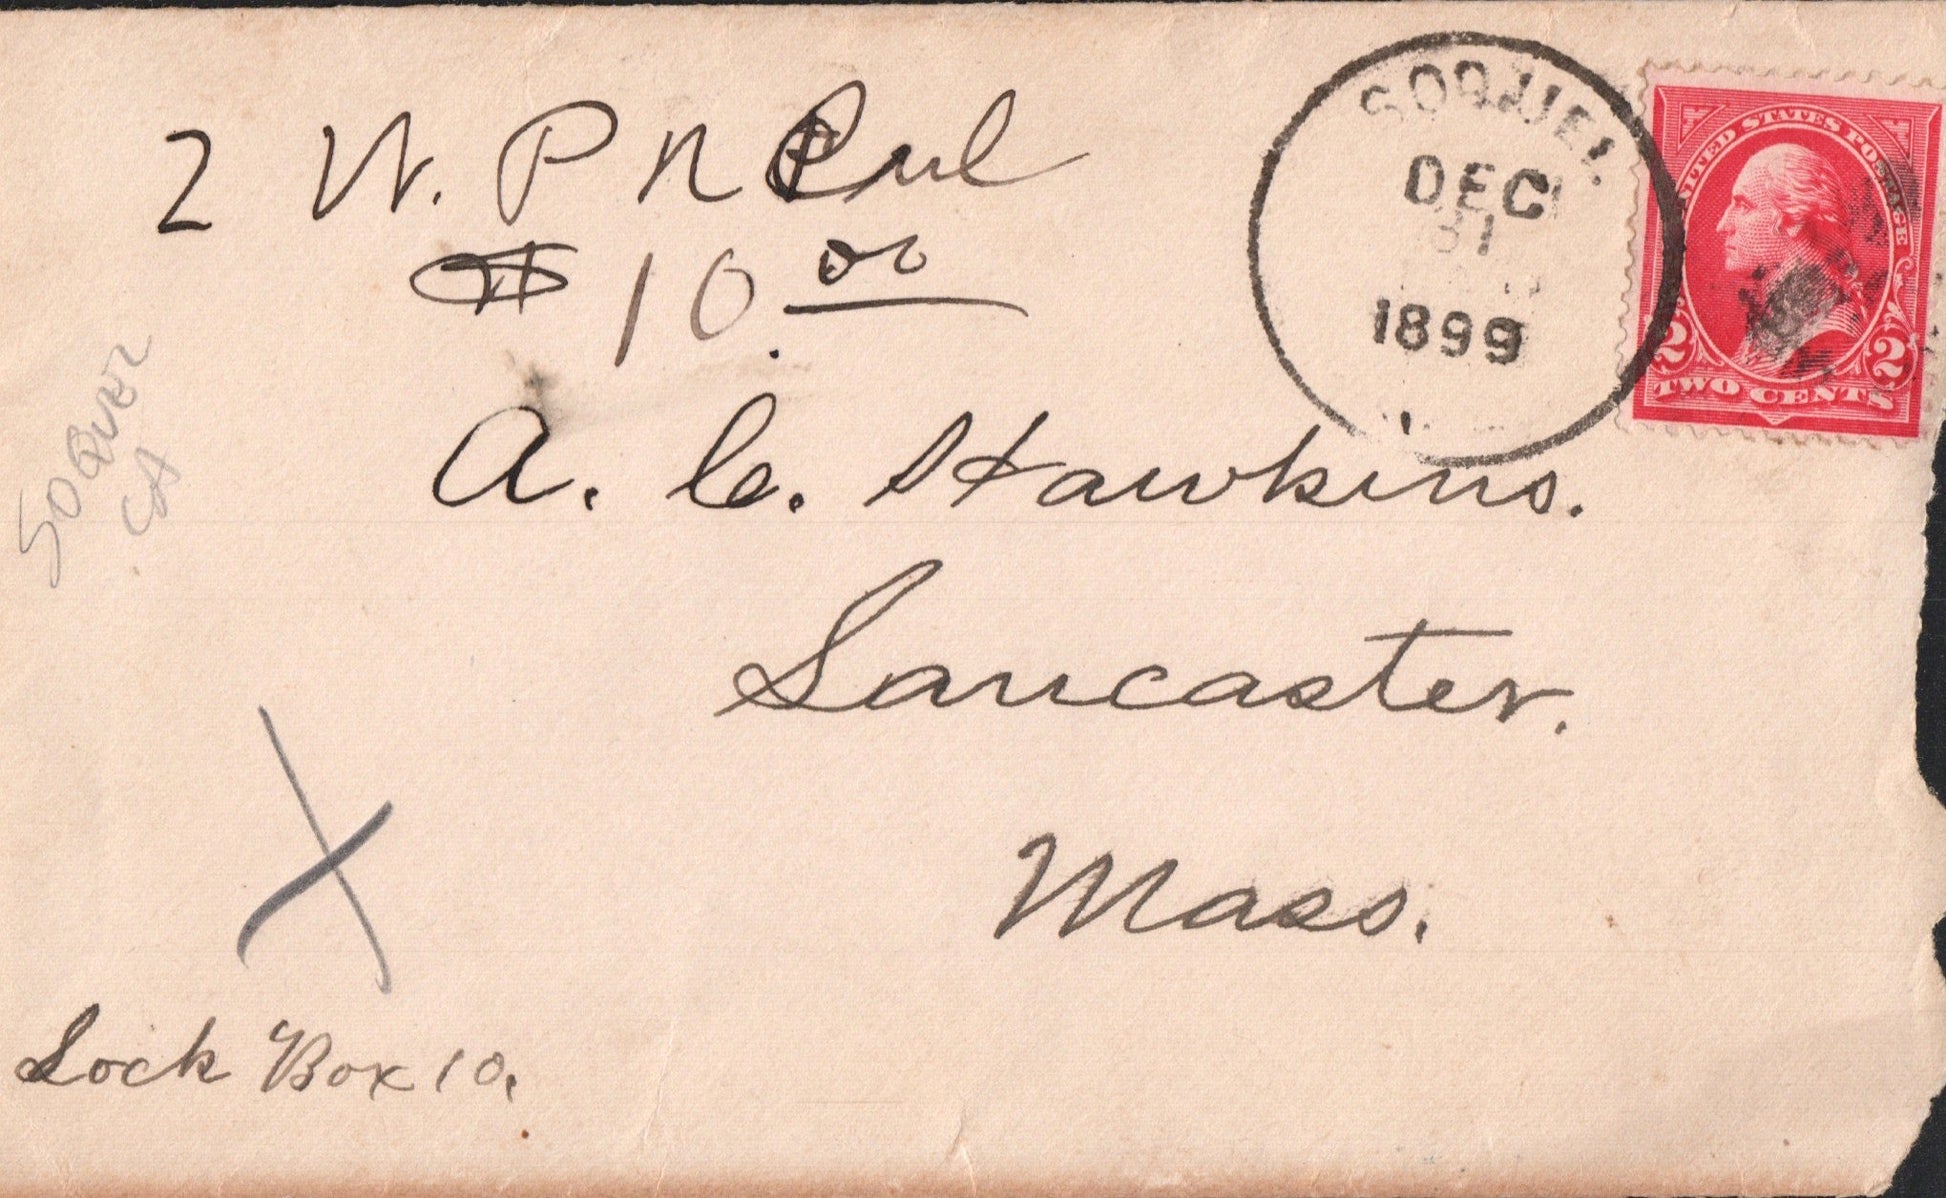 2 W. P. R
$10.00
A. C. Hawkins.
Lancaster.
Mass.
Lock Box 10.
SOQUEL
CA
SOQUEL
DEC
31
1899
UNITED STATES POSTAGE
2 2
TWO CENTS